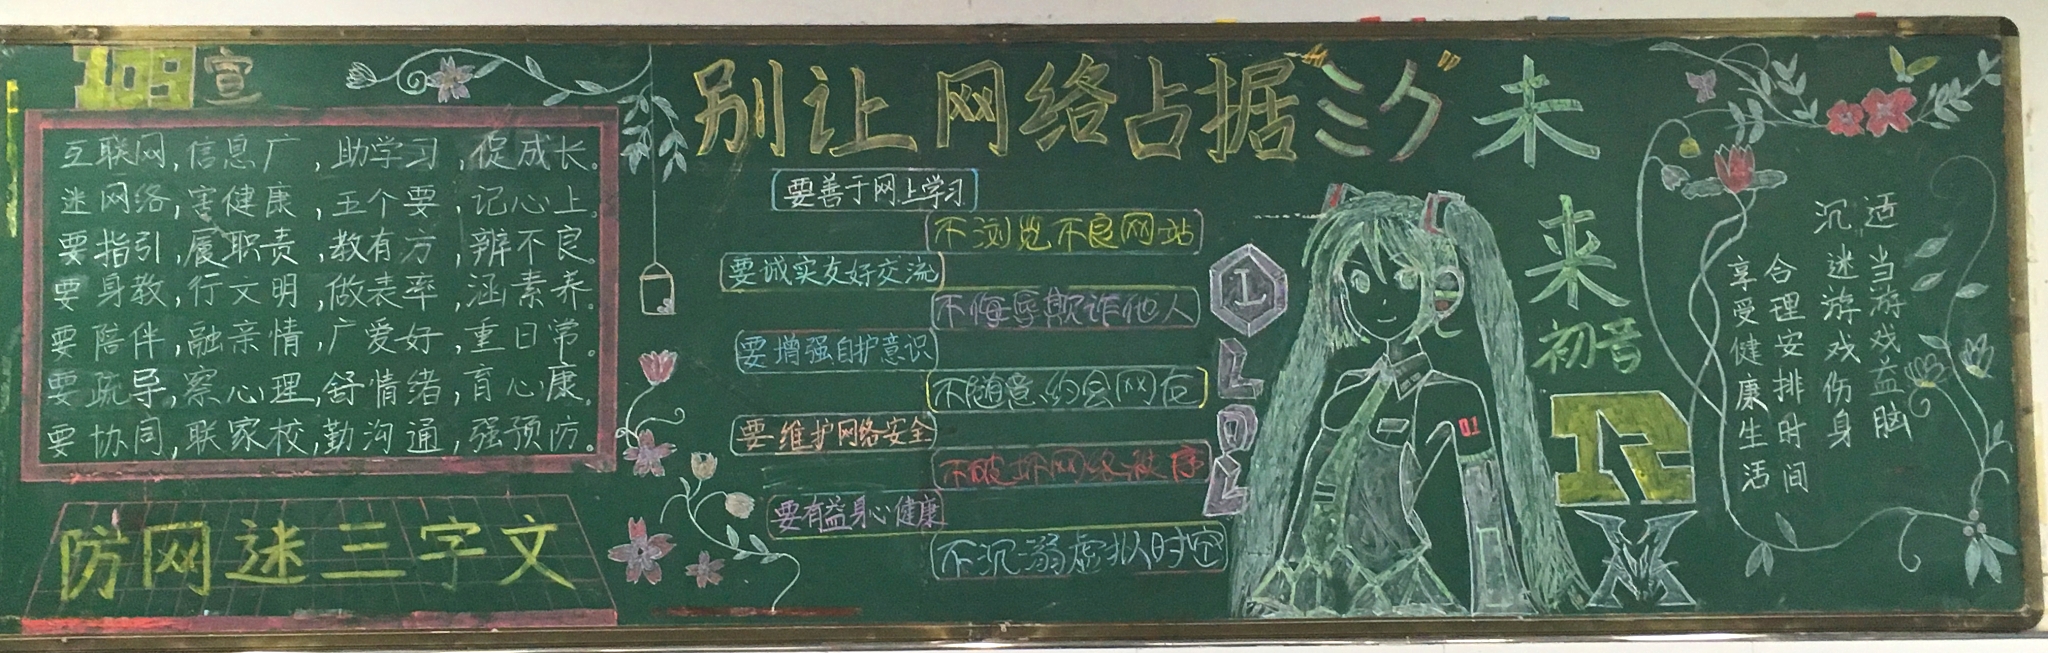 109宣
互联网,信息广,助学习,促成长。
迷网络,害健康,五个要,记心上。
要指引,履职责,教有方,辨不良。
要身教,行文明,做表率,涵素养。
要陪伴,融亲情,广爱好,重日常。
要疏导,察心理,舒情绪,育心康。
要协同,联家校,勤沟通,强预防。
防网迷三字文
别让网络占据"ミク"未来
初音
要善于网上学习
不浏览不良网站
要诚实友好交流
不侮辱欺诈他人
要增强自护意识
不随意约会网友
要维护网络安全
不破坏网络秩序
要有益身心健康
不沉溺虚拟时空
L
LOL
01
适当游戏益脑
沉迷游戏伤身
合理安排时间
享受健康生活